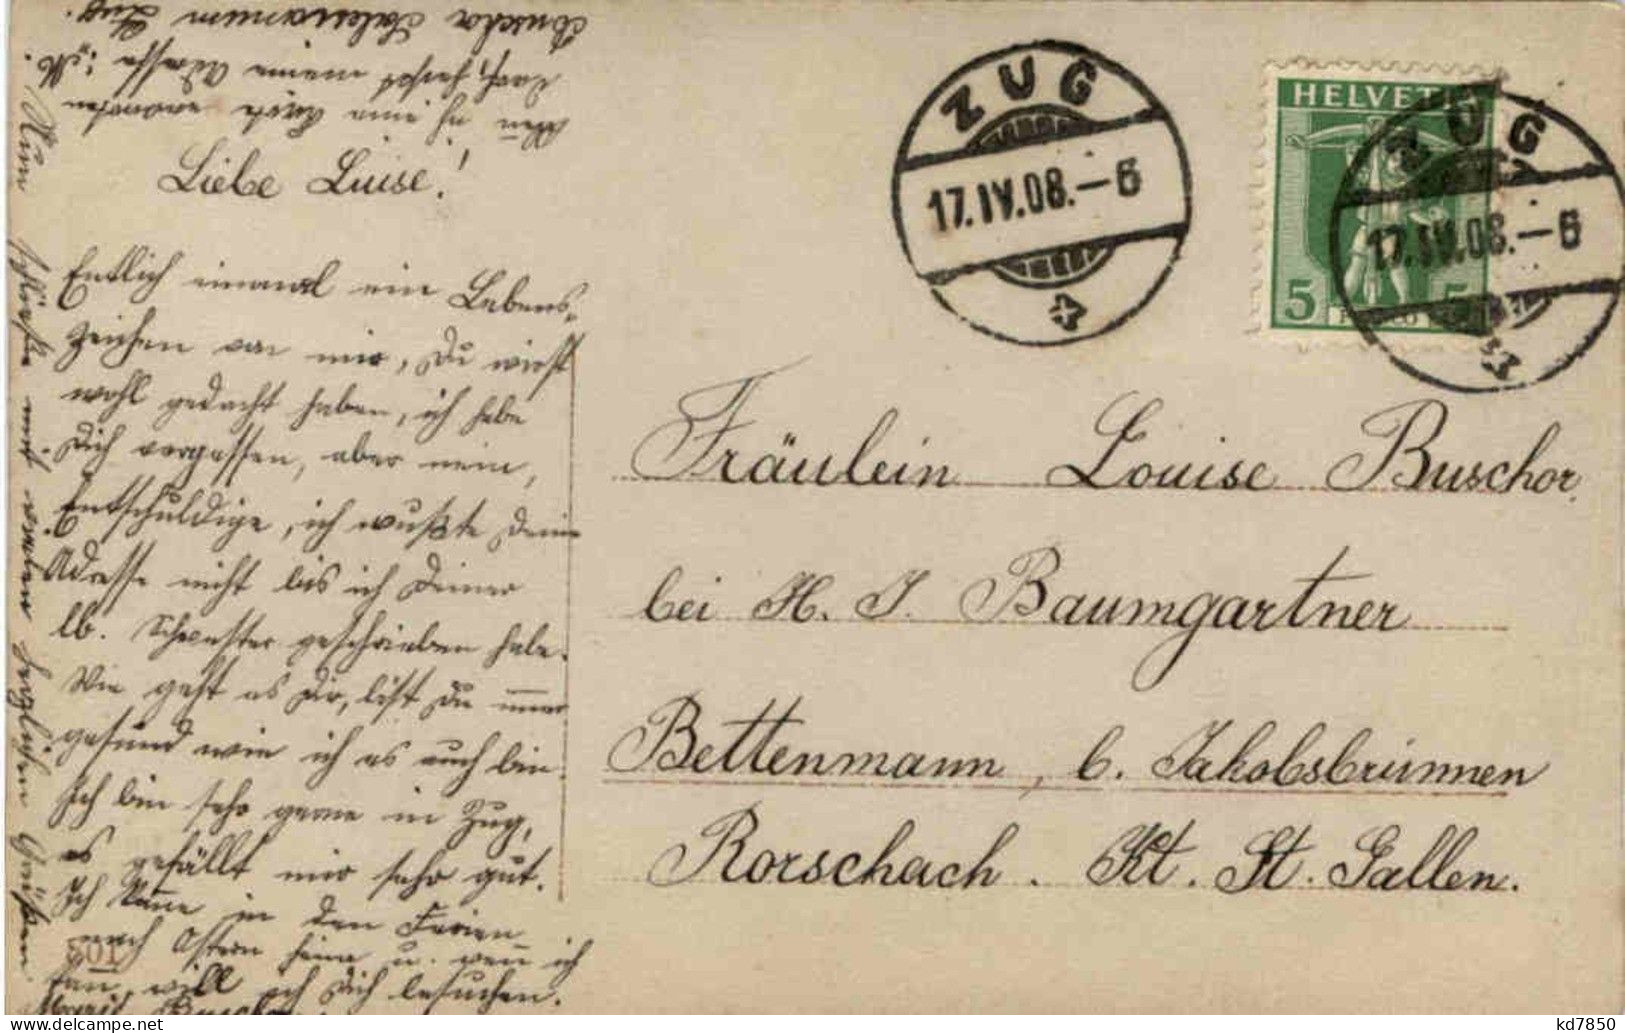 Liebe Luise!
Entlich einmal ein Lebens-
zeichen von mir, Du wirst
wohl gedacht haben, ich habe
Dich vergessen, aber nein,
Entschuldige, ich wußte Deine
Adresse nicht bis ich Deiner
lb. Schwester geschrieben habe.
Wie geht es Dir, bist Du immer
gesund wie ich es auch bin.
Ich bin sehr gerne in Zug,
es gefällt mir sehr gut.
Ich komme in den Ferien
nach Ostern heim u. wen̄ ich
kan̄, will ich Dich besuchen.
Nun schließe mit vielen herzlichen Grüßen
Buschor
Wen̄ ich eine Karte erwarten
darf, heißt meine Adresse: M.
Buschor Salesianum Zug.
501
ZUG
17.IV.08.–6
HELVETIA
5 FRANCO 5
ZUG
17.IV.08.–6
Fräulein Louise Buschor
bei H. J. Baumgartner
Bettenmann, b. Jakobsbrunnen
Rorschach. Kt. St. Gallen.
kd7850